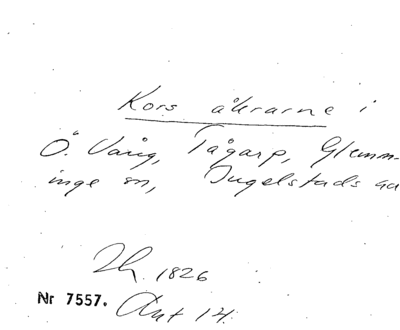 Kors åkrarne i
Ö. Vång, Tågarp, Glemm-
inge sn, Ingelstads
1826
Nr 7557. Ant 14.